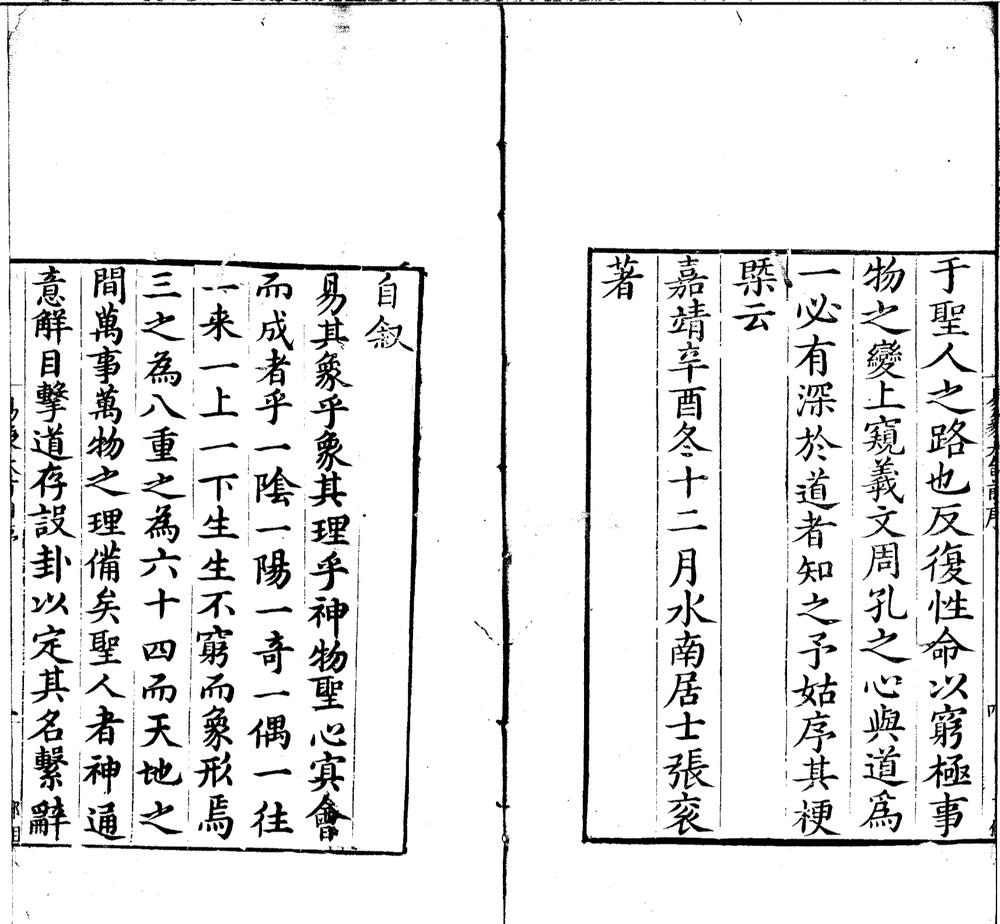 于聖人之路也反復性命以窮極事
物之變上窺羲文周孔之心與道為
一必有深於道者知之予姑序其梗
槩云
嘉靖辛酉冬十二月水南居士張袞
著
自敘
易其象乎象其理乎神物聖心冥會
而成者乎一陰一陽一奇一偶一往
一来一上一下生生不窮而象形焉
三之為八重之為六十四而天地之
間萬事萬物之理備矣聖人者神通
意解目擊道存設卦以定其名繫辭